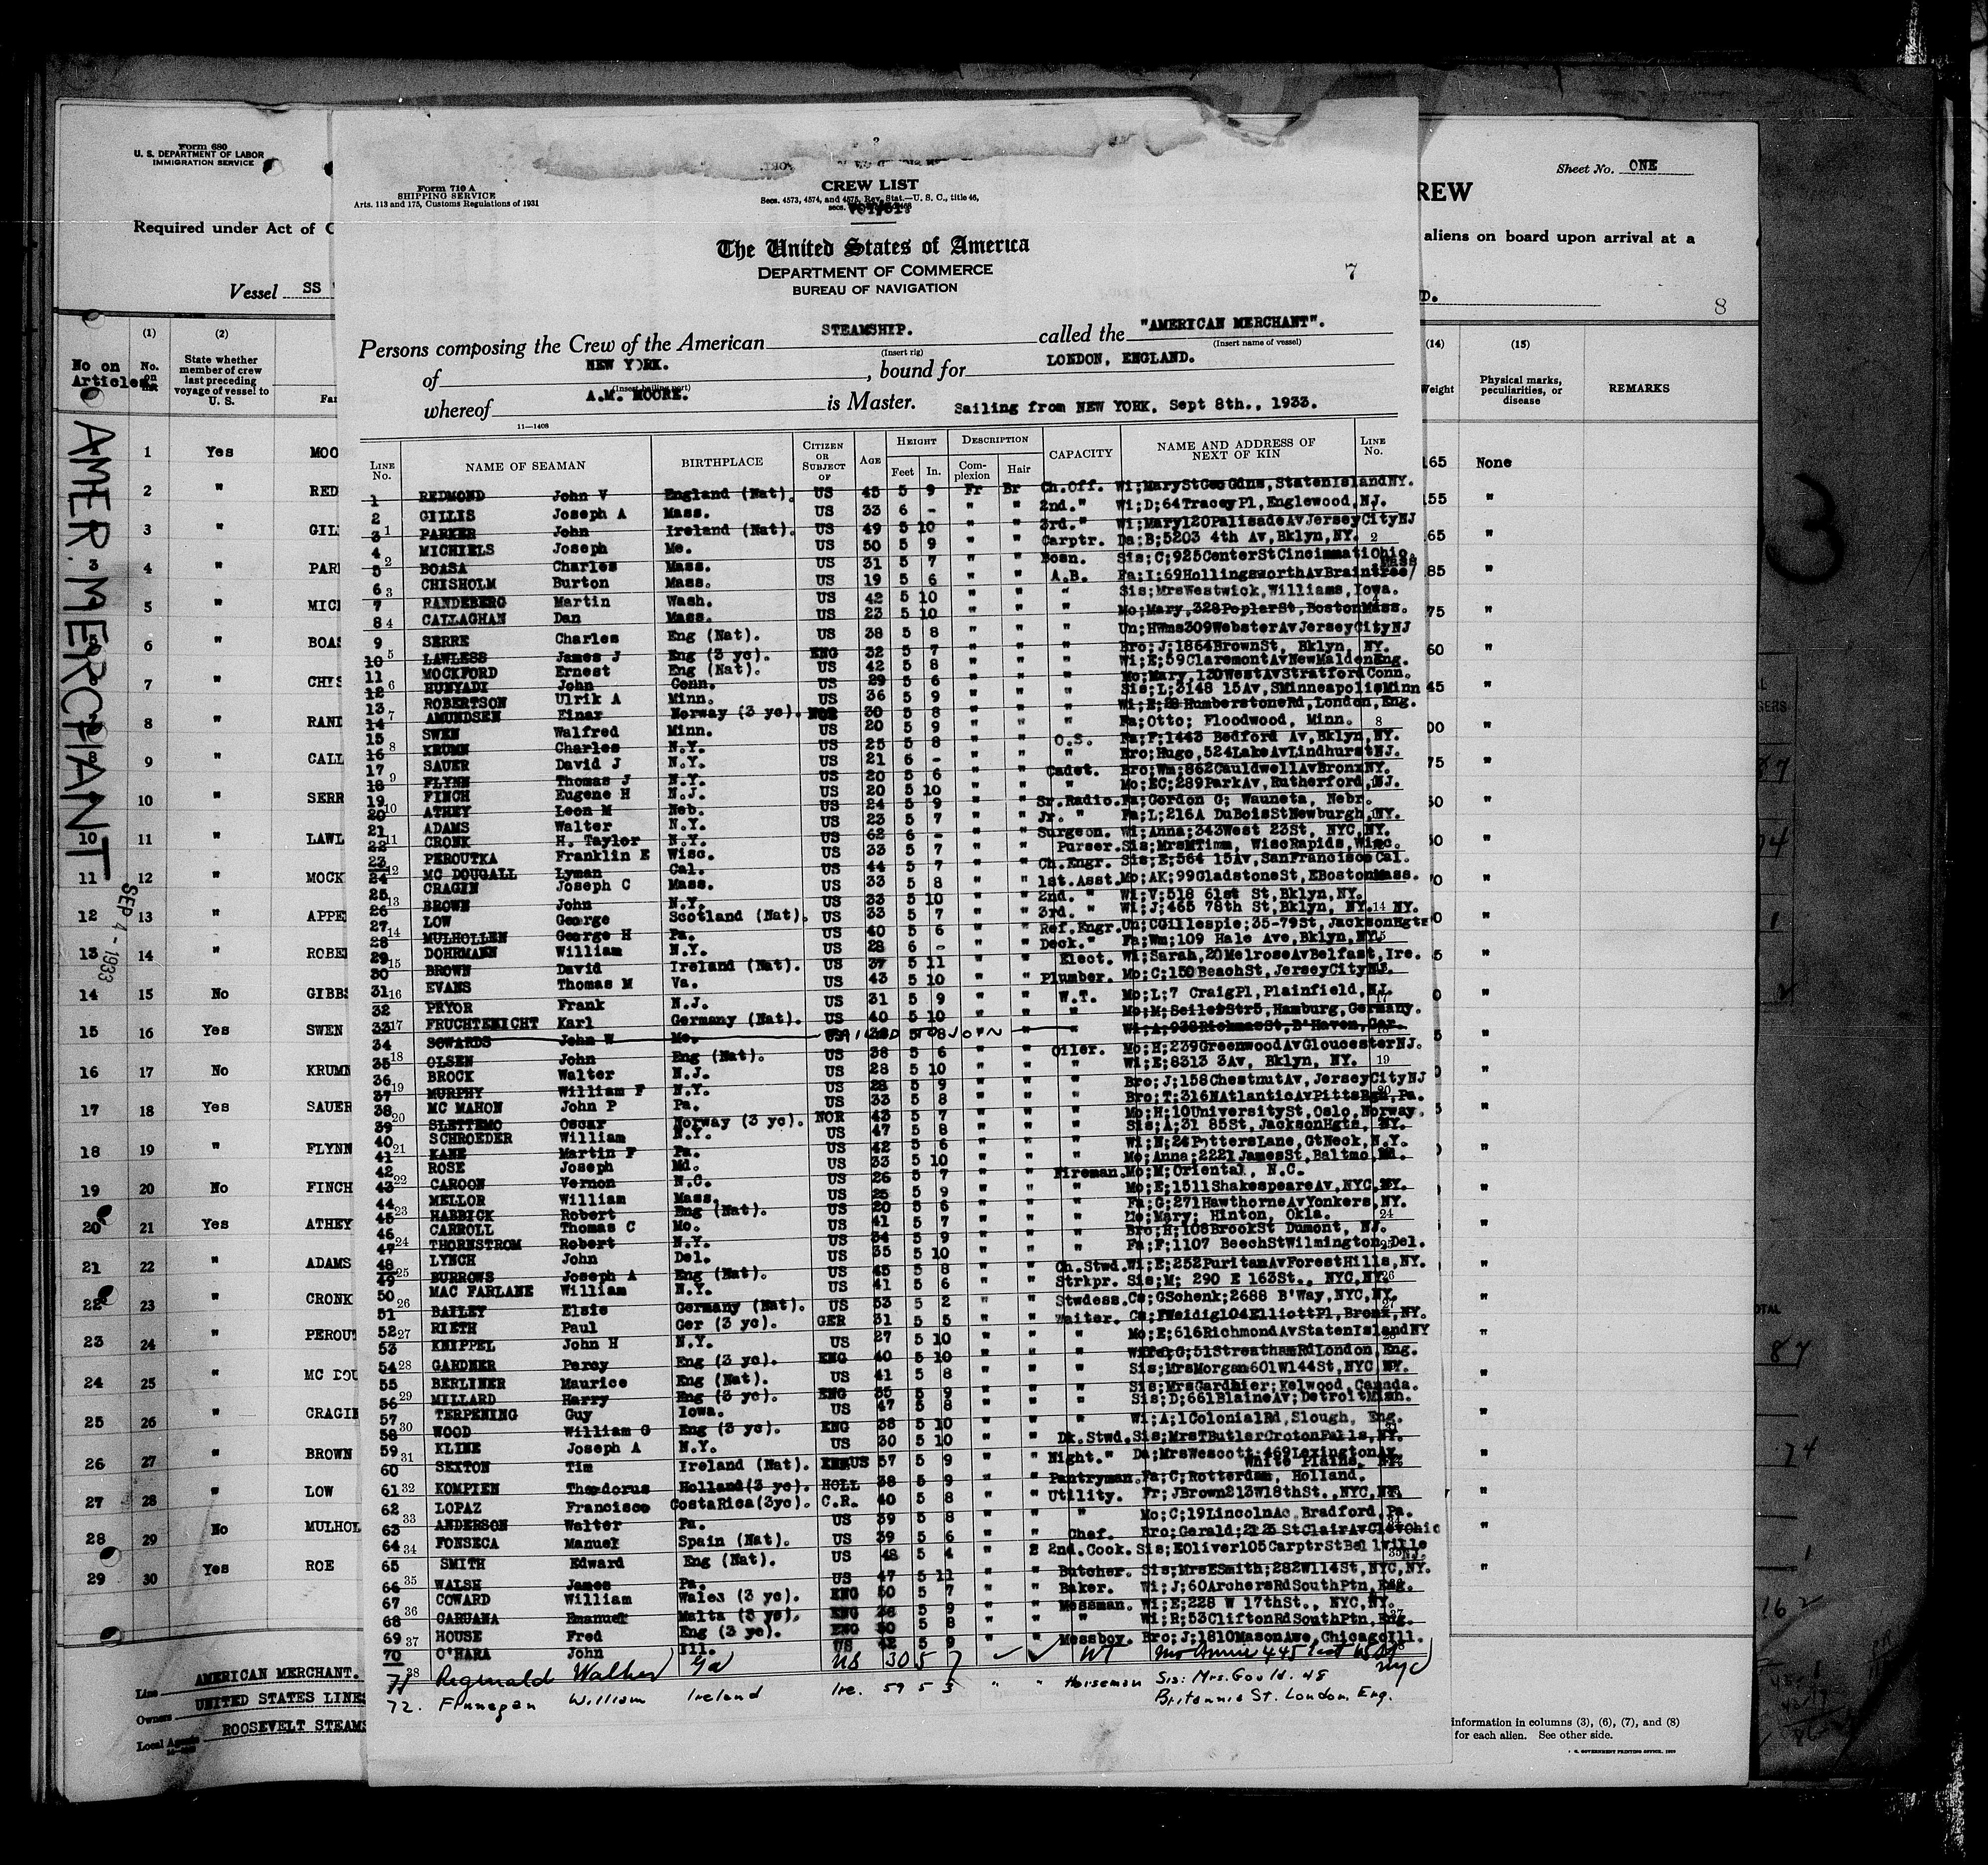 Form 680
U. S. DEPARTMENT OF LABOR
IMMIGRATION SERVICE
Required under Act of C
Vessel SS
Form 710 A
SHIPPING SERVICE
Arts. 113 and 175, Customs Regulations of 1931
CREW LIST
Secs. 4573, 4574, and 4575, Rev. Stat.—U. S. C., title 46,
The United States of America
DEPARTMENT OF COMMERCE
BUREAU OF NAVIGATION
7
Persons composing the Crew of the American STEAMSHIP. called the "AMERICAN MERCHANT".
(Insert rig) (Insert name of vessel)
of NEW YORK. , bound for LONDON, ENGLAND.
(Insert hailing port)
whereof A.M. MOORE. is Master. Sailing from NEW YORK, Sept 8th., 1933.
11—1408
LINE No. NAME OF SEAMAN BIRTHPLACE CITIZEN OR SUBJECT OF AGE HEIGHT Feet In. DESCRIPTION Complexion Hair CAPACITY NAME AND ADDRESS OF NEXT OF KIN LINE No.
1 REDMOND John V England (Nat). US 45 5 9 Fr Br Ch.Off. Wi;MaryStGeoGdns,StatenIslandNY.
2 GILLIS Joseph A Mass. US 33 6 - " " 2nd." Wi;D;64TraceyPl,Englewood,NJ.
3 PARKER John Ireland (Nat). US 49 5 10 " " 3rd." Wi;Mary120PalisadeAvJerseyCityNJ
4 MICHIELS Joseph Me. US 50 5 9 " " Carptr. Da;B;5203 4th Av,Bklyn,NY.
5 BOASA Charles Mass. US 31 5 7 " " Bosn. Sis;C;925CenterStCincinnatiOhio.
6 CHISHOLM Burton Mass. US 19 5 6 " " A.B. Fa;I;69HollingsworthAvBraintree/ Mass
7 RANDEBERG Martin Wash. US 42 5 10 " " " Sis;MrsWestwick,Williams,Iowa.
8 CALLAGHAN Dan Mass. US 23 5 10 " " " Mo;Mary,328PoplerSt,BostonMass.
9 SERRE Charles Eng (Nat). US 38 5 8 " " " Un;HWms309WebsterAvJerseyCityNJ
10 LAWLESS James J Eng (3 yc). ENG 32 5 7 " " " Bro;J;1864BrownSt, Bklyn, NY.
11 MOCKFORD Ernest Eng (Nat). US 42 5 8 " " " Wi;E;59ClaremontAvNewMaldenEng.
12 HUNYADI John Conn. US 29 5 6 " " " Mo;Mary,130WestAvStratfordConn.
13 ROBERTSON Ulrik A Minn. US 36 5 9 " " " Sis;L;3148 15Av,SMinneapolisMinn
14 AMUNDSEN Einar Norway (3 yc). NOR 30 5 8 " " " Wi;E;28 HumberstoneRd,London,Eng.
15 SWEN Walfred Minn. US 20 5 9 " " " Fa;Otto; Floodwood, Minn.
16 KRUMN Charles N.Y. US 25 5 8 " " O.S. Fa;F;1443 Bedford Av,Bklyn,NY.
17 SAUER David J N.Y. US 21 6 - " " " Bro;Hugo,524LakeAvLindhurstNJ.
18 FLYNN Thomas J N.Y. US 20 5 6 " " Cadet. Bro;Wm;862CauldwellAvBronxNY.
19 FINCH Eugene H N.J. US 20 5 10 " " " Mo;EC;289ParkAv,Rutherford,NJ.
20 ATHEY Leon M Neb. US 24 5 9 " " Sr.Radio. Fa;Gordon G; Wauneta, Nebr.
21 ADAMS Walter N.Y. US 23 5 7 " " Jr. " Fa;L;216A DuBoisStNewburgh,NY.
22 CRONK H. Taylor N.Y. US 62 6 - " " Surgeon. Wi;Anna;343West 23St, NYC,NY.
23 PEROUTKA Franklin E Wisc. US 33 5 7 " " Purser. Sis;MrsMTimm, WiscRapids,Wisc.
24 MC DOUGALL Lyman Cal. US 44 5 7 " " Ch.Engr. Sis;E;564 15Av,SanFranciscoCal.
25 CRAGIN Joseph C Mass. US 33 5 8 " " 1st.Asst. Mo;AK;99GladstoneSt,EBostonMass.
26 BROWN John N.Y. US 33 5 10 " " 2nd. " Wi;V;518 61st St,Bklyn,NY.
27 LOW George Scotland (Nat). US 33 5 7 " " 3rd. " Wi;J;465 78th St,Bklyn, NY.
28 MULHOLLEN George H Pa. US 40 5 6 " " Ref.Engr. Un;CGillespie;35-79St,JacksonHgts NY.
29 DOHRMANN William N.Y. US 28 6 - " " Deck." Fa;Wm;109 Hale Ave,Bklyn,NY.
30 BROWN David Ireland (Nat). US 37 5 11 " " Elect. Wi;Sarah,20MelroseAvBelfast,Ire.
31 EVANS Thomas M Va. US 43 5 10 " " Plumber. Mo;C;150BeachSt,JerseyCityNJ.
32 PRYOR Frank N.J. US 31 5 9 " " W.T. Mo;L;7 CraigPl,Plainfield,NJ.
33 FRUCHTENICHT Karl Germany (Nat). US 40 5 10 " " " Mo;M;SeilerStr5, Hamburg,Germany.
34 SOWARDS John W Mo. FAILED TO JOIN
35 OLSEN John Eng (Nat). US 38 5 6 " " Oiler. Mo;H;239GreenwoodAvGloucesterNJ.
36 BROCK Walter N.J. US 28 5 10 " " " Wi;E;8313 3Av, Bklyn, NY.
37 MURPHY William F N.Y. US 28 5 9 " " " Bro;J;158ChestnutAv,JerseyCityNJ
38 MC MAHON John P Pa. US 33 5 8 " " " Bro;T;316NAtlanticAvPittsBgh,Pa.
39 SLETTEMO Oscar Norway (3 yc). NOR 43 5 7 " " " Mo;H;10UniversitySt,Oslo,Norway.
40 SCHROEDER William N.Y. US 47 5 8 " " " Sis;A;31 85St,JacksonHgts, NY.
41 KANE Martin F Pa. US 42 5 6 " " " Wi;N;24PottersLane,GtNeck,N.Y.
42 ROSE Joseph Md. US 33 5 10 " " " Mo;Anna;2221JamesSt,Baltmo,Md.
43 CAROON Vernon N.C. US 26 5 7 " " Fireman. Mo;M;Oriental, N.C.
44 MELLOR William Mass. US 25 5 9 " " " Mo;E;1511ShakespeareAv,NYC,NY.
45 HABBICK Robert Eng (Nat). US 20 5 6 " " " Fa;G;271HawthorneAvYonkers,NY.
46 CARROLL Thomas C Mo. US 41 5 7 " " " Mo;Mary; Hinton, Okla.
47 THORNSTROM Robert N.Y. US 34 5 9 " " " Bro;H;108BrookSt Dumont, NJ.
48 LYNCH John Del. US 35 5 10 " " " Fa;F;1107 BeechStWilmington,Del.
49 BURROWS Joseph A Eng (Nat). US 45 5 8 " " Ch.Stwd. Wi;E;252PuritanAvForestHills,NY.
50 MAC FARLANE William N.Y. US 41 5 6 " " Strkpr. Sis;M; 290 E 163St., NYC,NY.
51 BAILEY Elsie Germany (Nat). US 53 5 2 " " Stwdess. Cs;GSchenk;2688 B'Way,NYC,NY.
52 RIETH Paul Ger (3 yc). GER 31 5 5 " " Waiter. Cs;FWeidig104ElliottPl,Bronx,NY.
53 KNIPPEL John H N.Y. US 27 5 10 " " " Mo;E;616RichmondAvStatenIslandNY
54 GARDNER Percy Eng (3 yc). ENG 40 5 10 " " " G;51StreathamRdLondon,Eng.
55 BERLINER Maurice Eng (Nat). US 41 5 8 " " " Sis;MrsMorgan601W144St,NYC,NY.
56 MILLARD Harry Eng (3 yc). ENG 35 5 9 " " " Sis;MrsGardhier;Kelwood,Canada.
57 TERPENING Guy Iowa. US 47 5 8 " " " Sis;D;661BlaineAv;DetroitMich.
58 WOOD William G Eng (3 yc). ENG 38 5 10 " " " Wi;A;1ColonialRd,Slough, Eng.
59 KLINE Joseph A N.Y. US 30 5 10 " " Dk.Stwd. Sis;MrsTButlerCrotonFalls,NY.
60 SEXTON Tim Ireland (Nat). US 57 5 9 " " Night." Da;MrsWescott;469LexingtonAv. White Plains, NY.
61 KOMPIEN Theodorus Holland(3 yc). HOLL 38 5 9 " " Pantryman. Fa;C;Rotterdam, Holland.
62 LOPAZ Francisco CostaRica(3yc). C.R. 40 5 8 " " Utility. Fr;JBrown213W18thSt.,NYC,NY.
63 ANDERSON Walter Pa. US 39 5 8 " " " Mo;C;19LincolnAc Bradford,Pa.
64 FONSECA Manuel Spain (Nat). US 39 5 6 " " Chef. Bro;Gerald;2123 StClairAvClevOhio
65 SMITH Edward Eng (Nat). US 48 5 4 " 2nd.Cook. Sis;EOliver105CarptrStBellville NJ.
66 WALSH James Pa. US 47 5 11 " " Butcher. Sis;MrsESmith;282W114St,NYC,NY.
67 COWARD William Wales (3 yc). ENG 50 5 7 " " Baker. Wi;J;60ArchersRdSouthPtn,Eng.
68 CARUANA Emanuel Malta (3 yc). ENG 38 5 9 " " Messman. Wi;E;228 W 17thSt., NYC,NY.
69 HOUSE Fred Eng (3 yc). ENG 30 5 8 " " " Wi;R;53CliftonRdSouthPtn,Eng.
70 O'HARA John Ill. US 42 5 9 " " Messboy. Bro;J;1810MasonAve,ChicagoIll.
71 Reginald Walker Ga US 30 5 7 WT Mo Annie 445 NYC
72. Finnegan William Ireland Ire. 59 5 5 " " Horseman Sis: Mrs. Gould. 48
Britannia St. London, Eng.
Sheet No. ONE
REW
aliens on board upon arrival at a
D.
8
No on Articles. (1) No. on (2) State whether member of crew last preceding voyage of vessel to U. S.
1 Yes MOO
2 " RED
3 " GIL
3 4 " PAR
5 " MIC
6 " BOAS
7 " CHIS
8 " RAND
9 " CALL
10 " SERR
10 11 " LAWL
11 12 " MOCK
12 13 " APPE
13 14 " ROBE
14 15 No GIBBS
15 16 Yes SWEN
16 17 No KRUMN
17 18 Yes SAUER
18 19 " FLYNN
19 20 No FINCH
20 21 Yes ATHEY
21 22 " ADAMS
22 23 " CRONK
23 24 " PEROUT
24 25 " MC DOU
25 26 " CRAGIN
26 27 " BROWN
27 28 " LOW
28 29 No MULHOL
29 30 Yes ROE
AMER. MERCHANT
SEP 4 - 1933
Line AMERICAN MERCHANT.
Owners UNITED STATES LINES
Local Agents ROOSEVELT STEAMS
(14) (15)
Weight Physical marks, peculiarities, or disease REMARKS
165 None
155 "
"
165 "
185 "
75 "
60 "
45 "
00 "
75 "
3
information in columns (3), (6), (7), and (8)
for each alien. See other side.